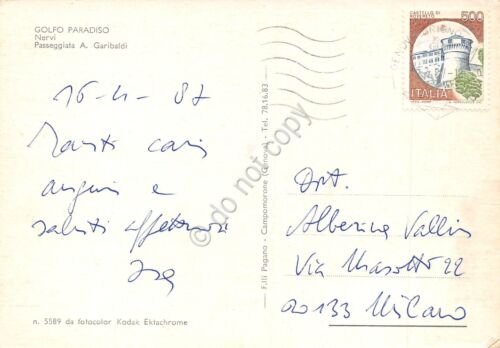 GOLFO PARADISO
Nervi
Passeggiata A. Garibaldi
16-4-87
Tanti cari
auguri e
saluti affettuosi
Isa
n. 5589 da fotocolor Kodak Ektachrome
F.lli Pagano - Campomorone (Genova) - Tel. 78.16.83
do not copy
CASTELLO DI
ROVERETO
500
ITALIA
Dott.
Alberica Vallin
Via Masotto 22
20133 Milano